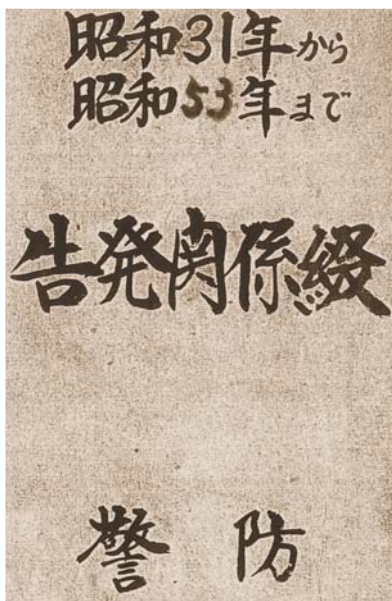 昭和31年から
昭和53年まで
告発関係綴
警防